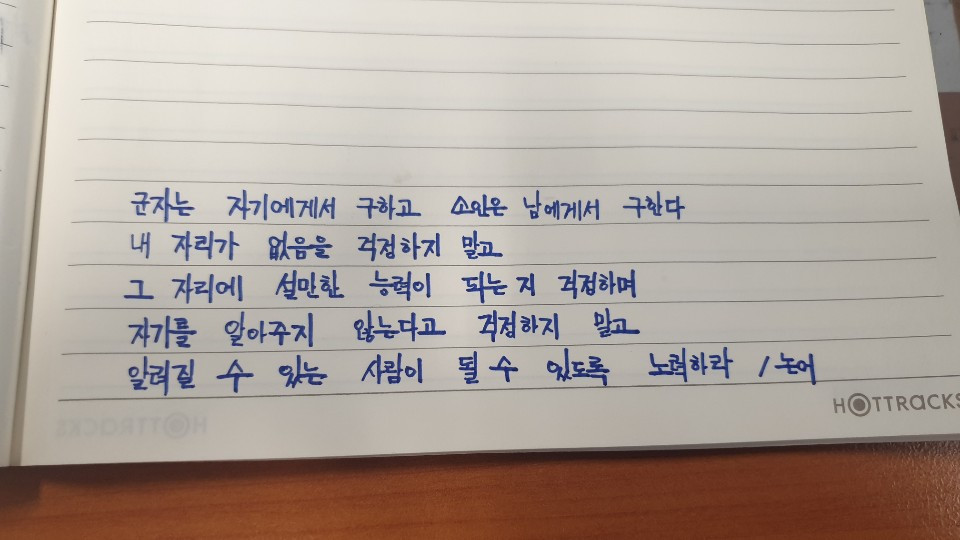 군자는 자기에게서 구하고 소인은 남에게서 구한다
내 자리가 없음을 걱정하지 말고
그 자리에 설만한 능력이 되는지 걱정하며
자기를 알아주지 않는다고 걱정하지 말고
알려질 수 있는 사람이 될 수 있도록 노력하라 / 논어
HOTTRACKS